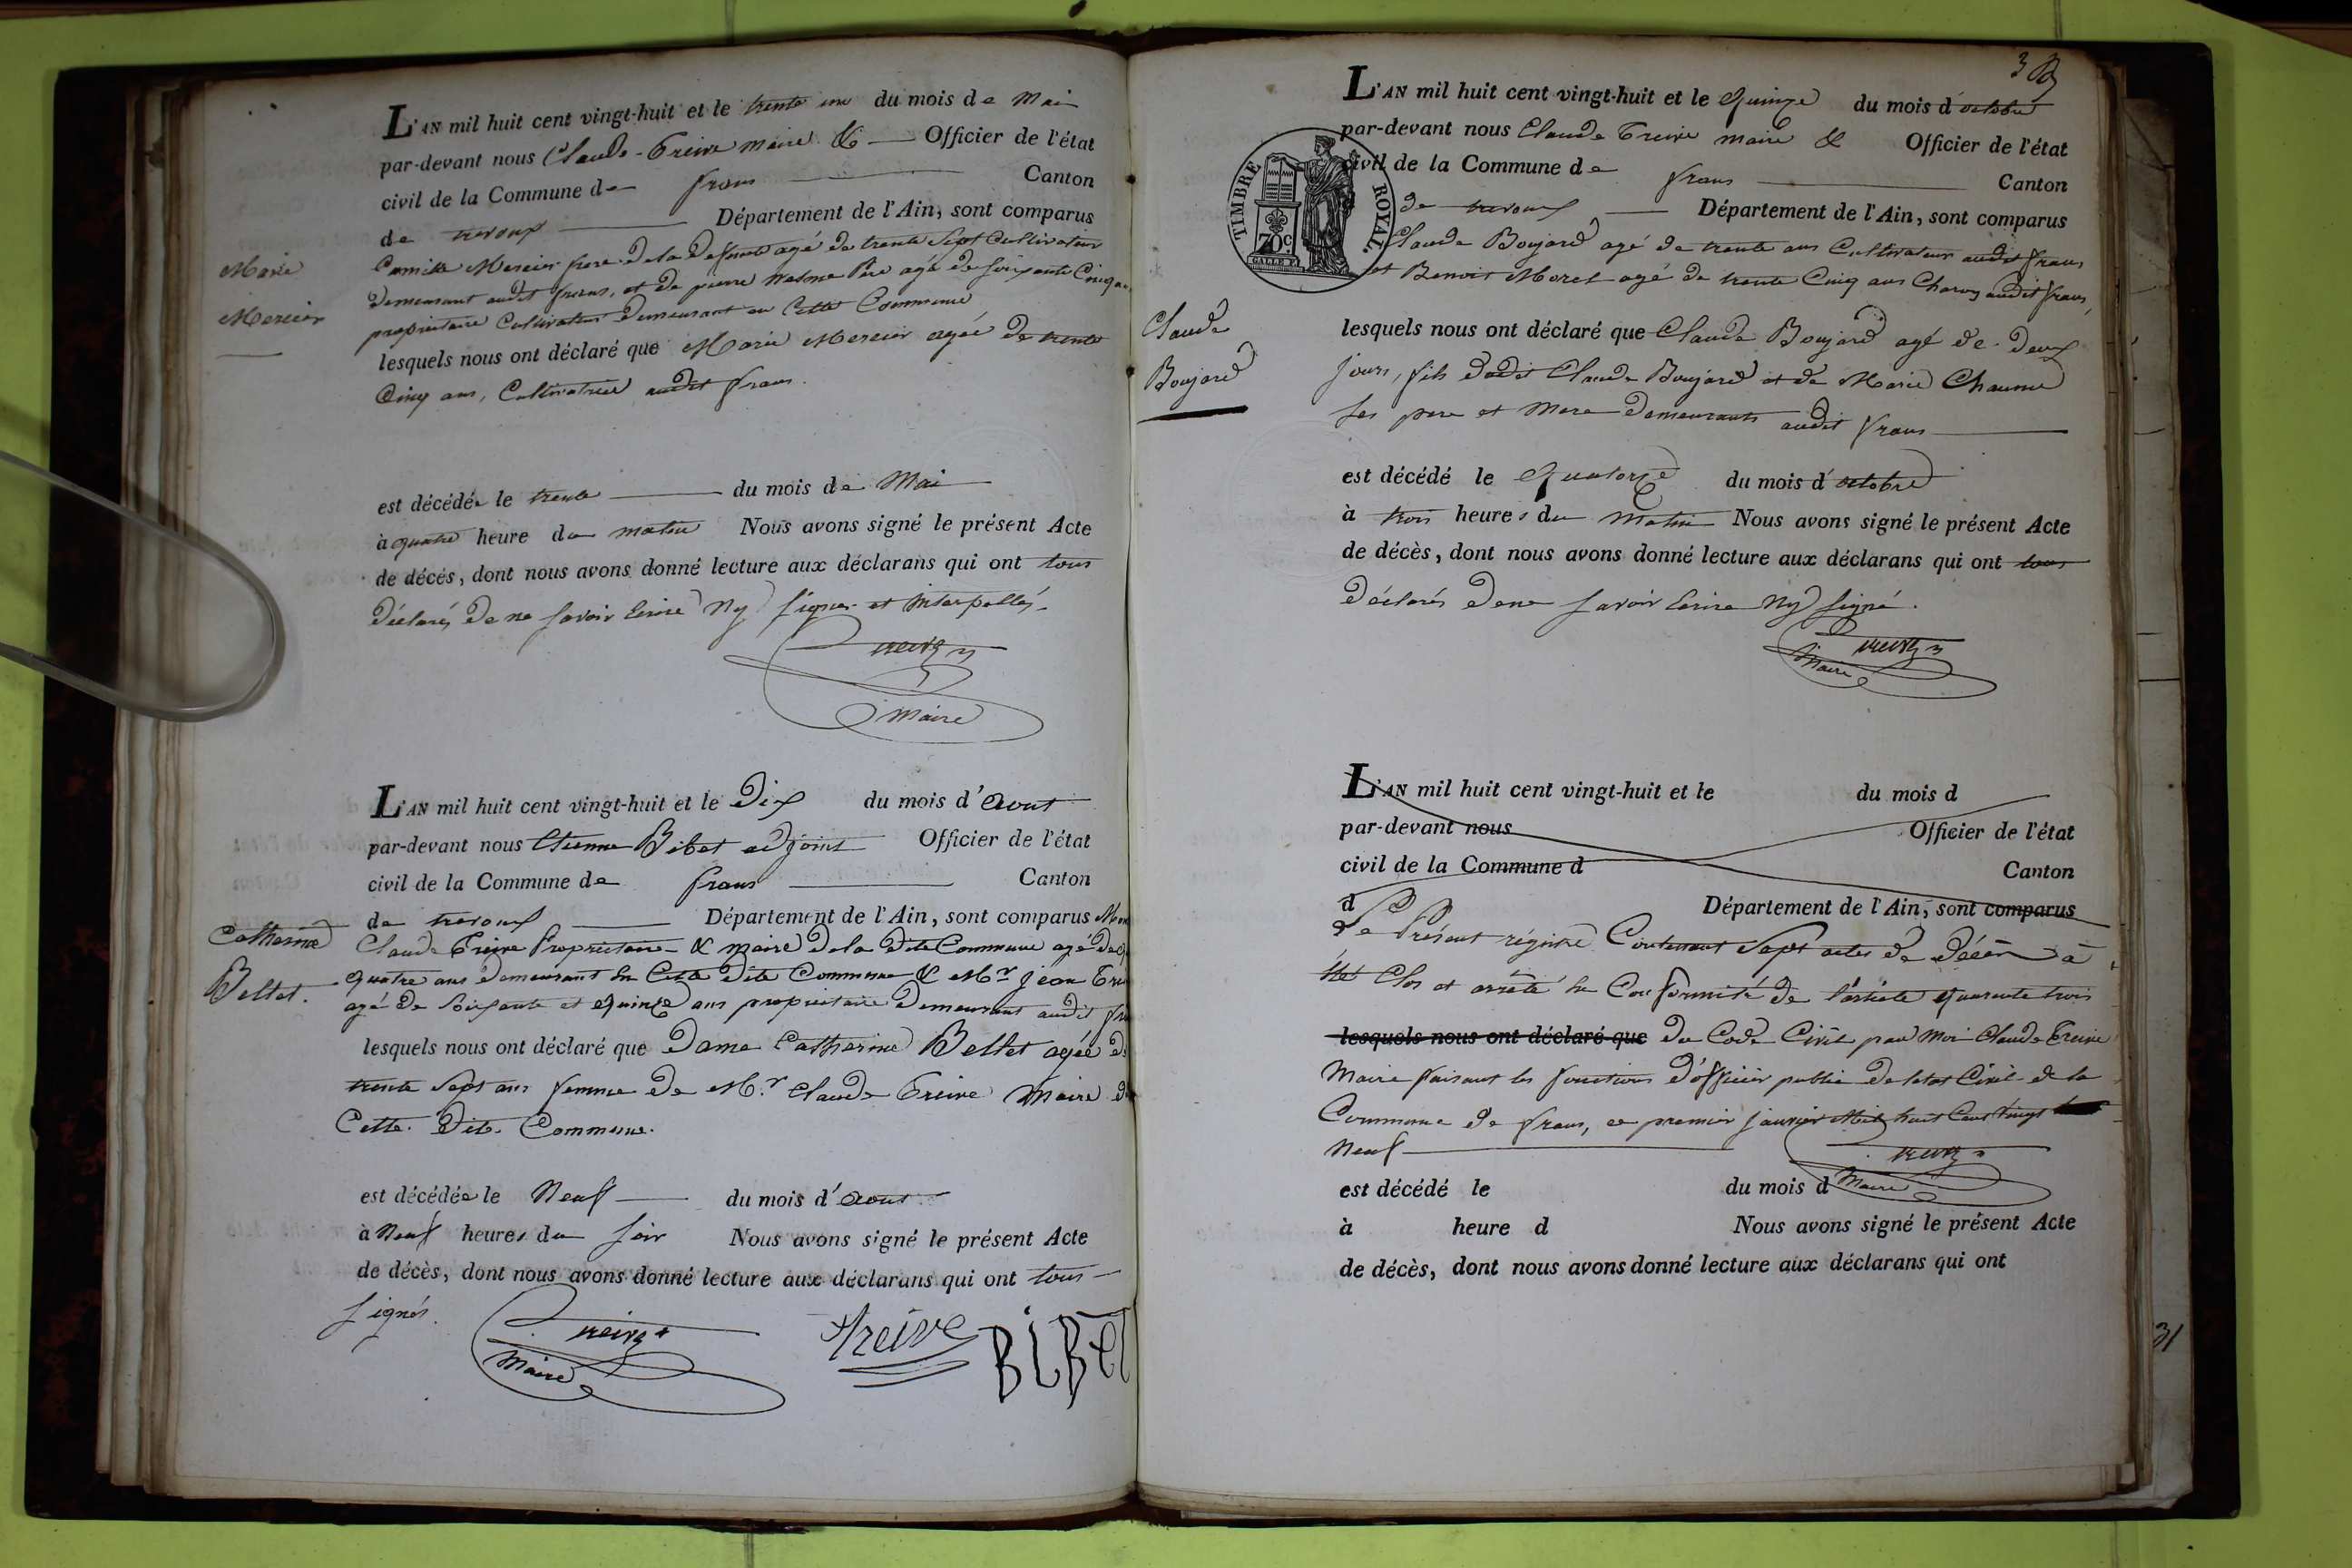 L'AN mil huit cent vingt-huit et le trente un du mois de Mai
par-devant nous Claude Treive maire & Officier de l'état
civil de la Commune de frans Canton
de trevoux Département de l'Ain, sont comparus
Marie
Mercier
Camille Mercier frere de la defunte agé de trente Sept Cultivateur
demeurant audit frans, et de pierre Pére agé de soixante Cinq
propriétaire Cultivateur demeurant en Cette Commune
lesquels nous ont déclaré que Marie Mercier agée de trente
Cinq ans, Cultivatrice audit frans.
est décédée le trente du mois de Mai
à quatre heure du matin Nous avons signé le présent Acte
de décès, dont nous avons donné lecture aux déclarans qui ont tous
déclarés de ne Savoir Ecrire Ny Signer et Interpellés
Treive
Maire
L'AN mil huit cent vingt-huit et le Dix du mois d'Aout
par-devant nous Etienne Bibet adjoint Officier de l'état
civil de la Commune de frans Canton
de trevoux Département de l'Ain, sont comparus
Catherine
Bellet.
Claude Treive Propriétaire & maire de la dite Commune agé de
quatre ans demeurant En Cette dite Commune & Mr jean
agé de Soixante et quinze ans propriétaire demeurant audit
lesquels nous ont déclaré que Dame Catherine Bellet agée de
trente Sept ans femme de Mr Claude Treive Maire de
Cette dite Commune.
est décédée le Neuf du mois d'Aout
à Neuf heures du Soir Nous avons signé le présent Acte
de décès, dont nous avons donné lecture aux déclarans qui ont tous
Signés.
Treive
Maire
Treive
BIBET
L'AN mil huit cent vingt-huit et le Quinze du mois d'octobre
par-devant nous Claude Treive maire & Officier de l'état
civil de la Commune de frans Canton
de trevoux Département de l'Ain, sont comparus
TIMBRE ROYAL.
70c
Claude Boujard agé de trente ans Cultivateur audit frans
et Benoit Morel agé de trente Cinq ans Charon audit frans,
Claude
Boujard
lesquels nous ont déclaré que Claude Boujard agé de deux
jours, fils dudit Claude Boujard et de Marie Chaume
Ses pere et Mere demeurants audit frans
est décédé le Quatorze du mois d'octobre
à trois heures du Matin Nous avons signé le présent Acte
de décès, dont nous avons donné lecture aux déclarans qui ont tous
déclarés de ne Savoir Ecrire Ny Signé.
Treive
Maire
L'AN mil huit cent vingt-huit et le du mois d
par-devant nous Officier de l'état
civil de la Commune d Canton
d Département de l'Ain, sont comparus
Le Présent régistre Contenant Sept actes de décès a
été Clos et arrêté En Conformité de l'article quarante trois
lesquels nous ont déclaré que du Code Civil par Moi Claude Treive
Maire faisant les fonctions d'officier public de l'etat Civil de la
Commune de frans, ce premier janvier Mil huit Cent Vingt
Neuf
Treive
Maire
est décédé le du mois d
à heure d Nous avons signé le présent Acte
de décès, dont nous avons donné lecture aux déclarans qui ont
31